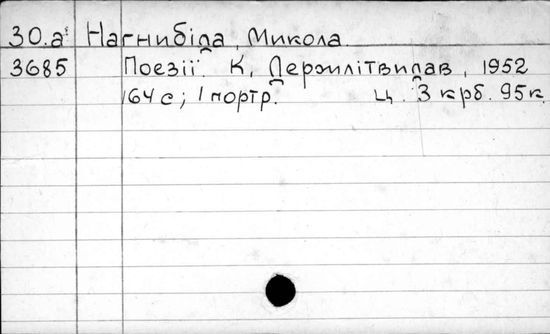 30.a Нагнибіда, Микола.
3685 Поезії. К, Держлітвидав, 1952
164 с; 1 портр. Ц. 3 крб. 95 к